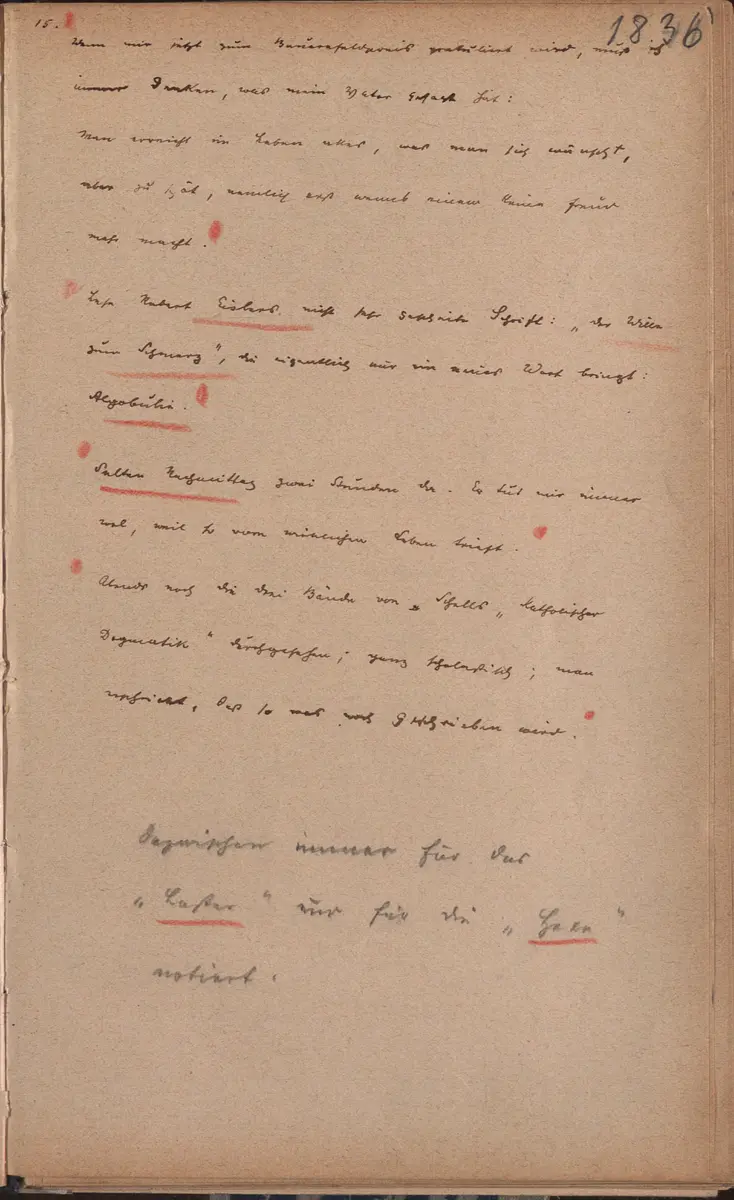 15.
1836
Wenn mir jetzt zum Bauernfeldpreis gratuliert wird, muß ich
immer denken, was mein Vater gesagt hat:
Man erreicht im Leben alles, was man sich wünscht,
aber zu spät, nemlich erst wenns einem keine Freud
mehr macht.
Lese Robert Eislers nicht sehr gescheite Schrift: „der Wille
zum Schmerz", die eigentlich nur ein neues Wort bringt:
Algobulie.
Salten Nachmittag zwei Stunden da. Er tut mir immer
wol, weil er vom wirklichen Leben trieft.
Abends noch die drei Bände von Schells „Katholischer
Dogmatik" durchgesehen; ganz scholastisch; man
erschrickt, daß so was noch geschrieben wird.
Dazwischen immer für das
„Laster" und für die „Hexe"
notiert.